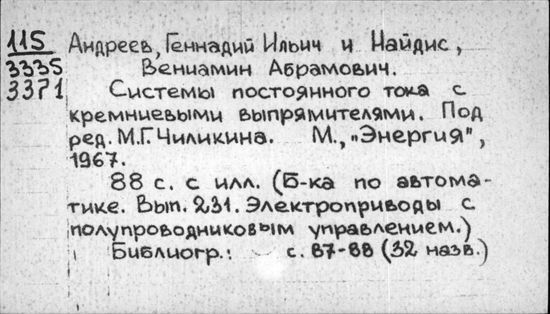 115
3335
3371
Андреев, Геннадий Ильич и Найдис,
Вениамин Абрамович.
Системы постоянного тока с
кремниевыми выпрямителями. Под
ред. М.Г. Чиликина. М., "Энергия",
1967.
88 с. с илл. (Б-ка по автома-
тике. Вып. 231. Электроприводы с
полупроводниковым управлением.)
Библиогр.: с. 87-88 (32 назв.)